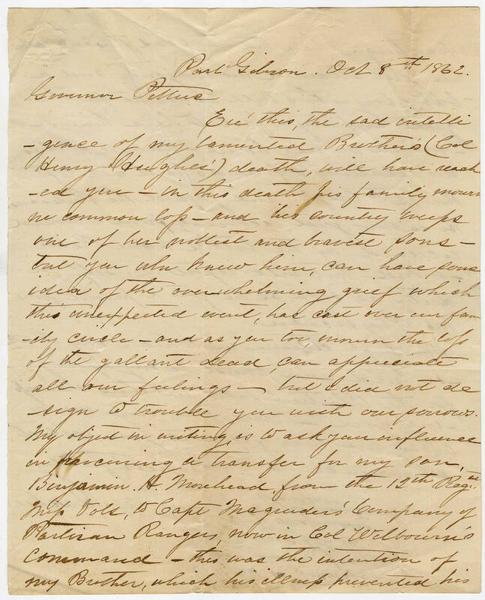 Port Gibson. Oct 8th 1862.
Governor Pettus
Ere this, the sad intelli
-gence of my lamented Brother's (Col
Henry Hughes') death, will have reach
-ed you - in this death his family mourn
no common loss - and his country weeps
one of her noblest and bravest sons -
but you who knew him, can have some
idea of the overwhelming grief which
this unexpected event, has cast over our fam
-ily circle - and as you too, mourn the loss
of the gallant dead, can appreciate
all our feelings - but I did not de
-sign to trouble you with our sorrows.
My object in writing, is to ask your influence
in procuring a transfer for my son,
Benjamin H. Morehead from the 12th Regt
Miss Vols, to Capt Magruders' Company of
Partisan Rangers, now in Col Wilbourn's
command - this was the intention of
my Brother, which his illness prevented his